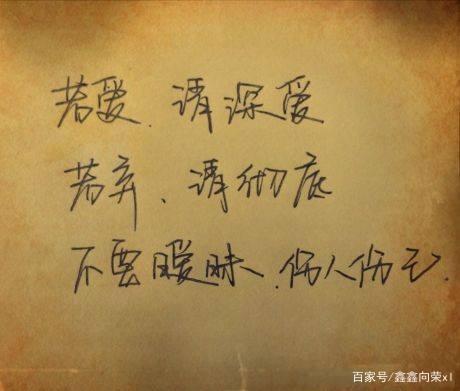 若爱、请深爱
若弃、请彻底
不要暧昧、伤人伤己.
百家号/鑫鑫向荣xl